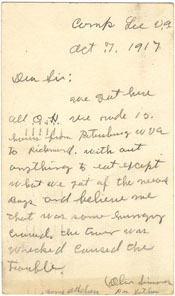 Camp Lee Va
Oct 7. 1917
Dear Sir:
we got here
all O.K. we rode 10
hours from Petersburg W Va
to Richmond. with out
anything to eat except
what we got of the news
Boys and believe me
that was some hungry
crowd, the train was
wrecked caused the
trouble.